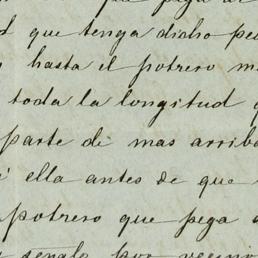 que pega al
d que tenga dicho pe
hasta el potrero m
toda la longitud q
parte de mas arriba
ella antes de que
potrero que pega a
señalo por vecino